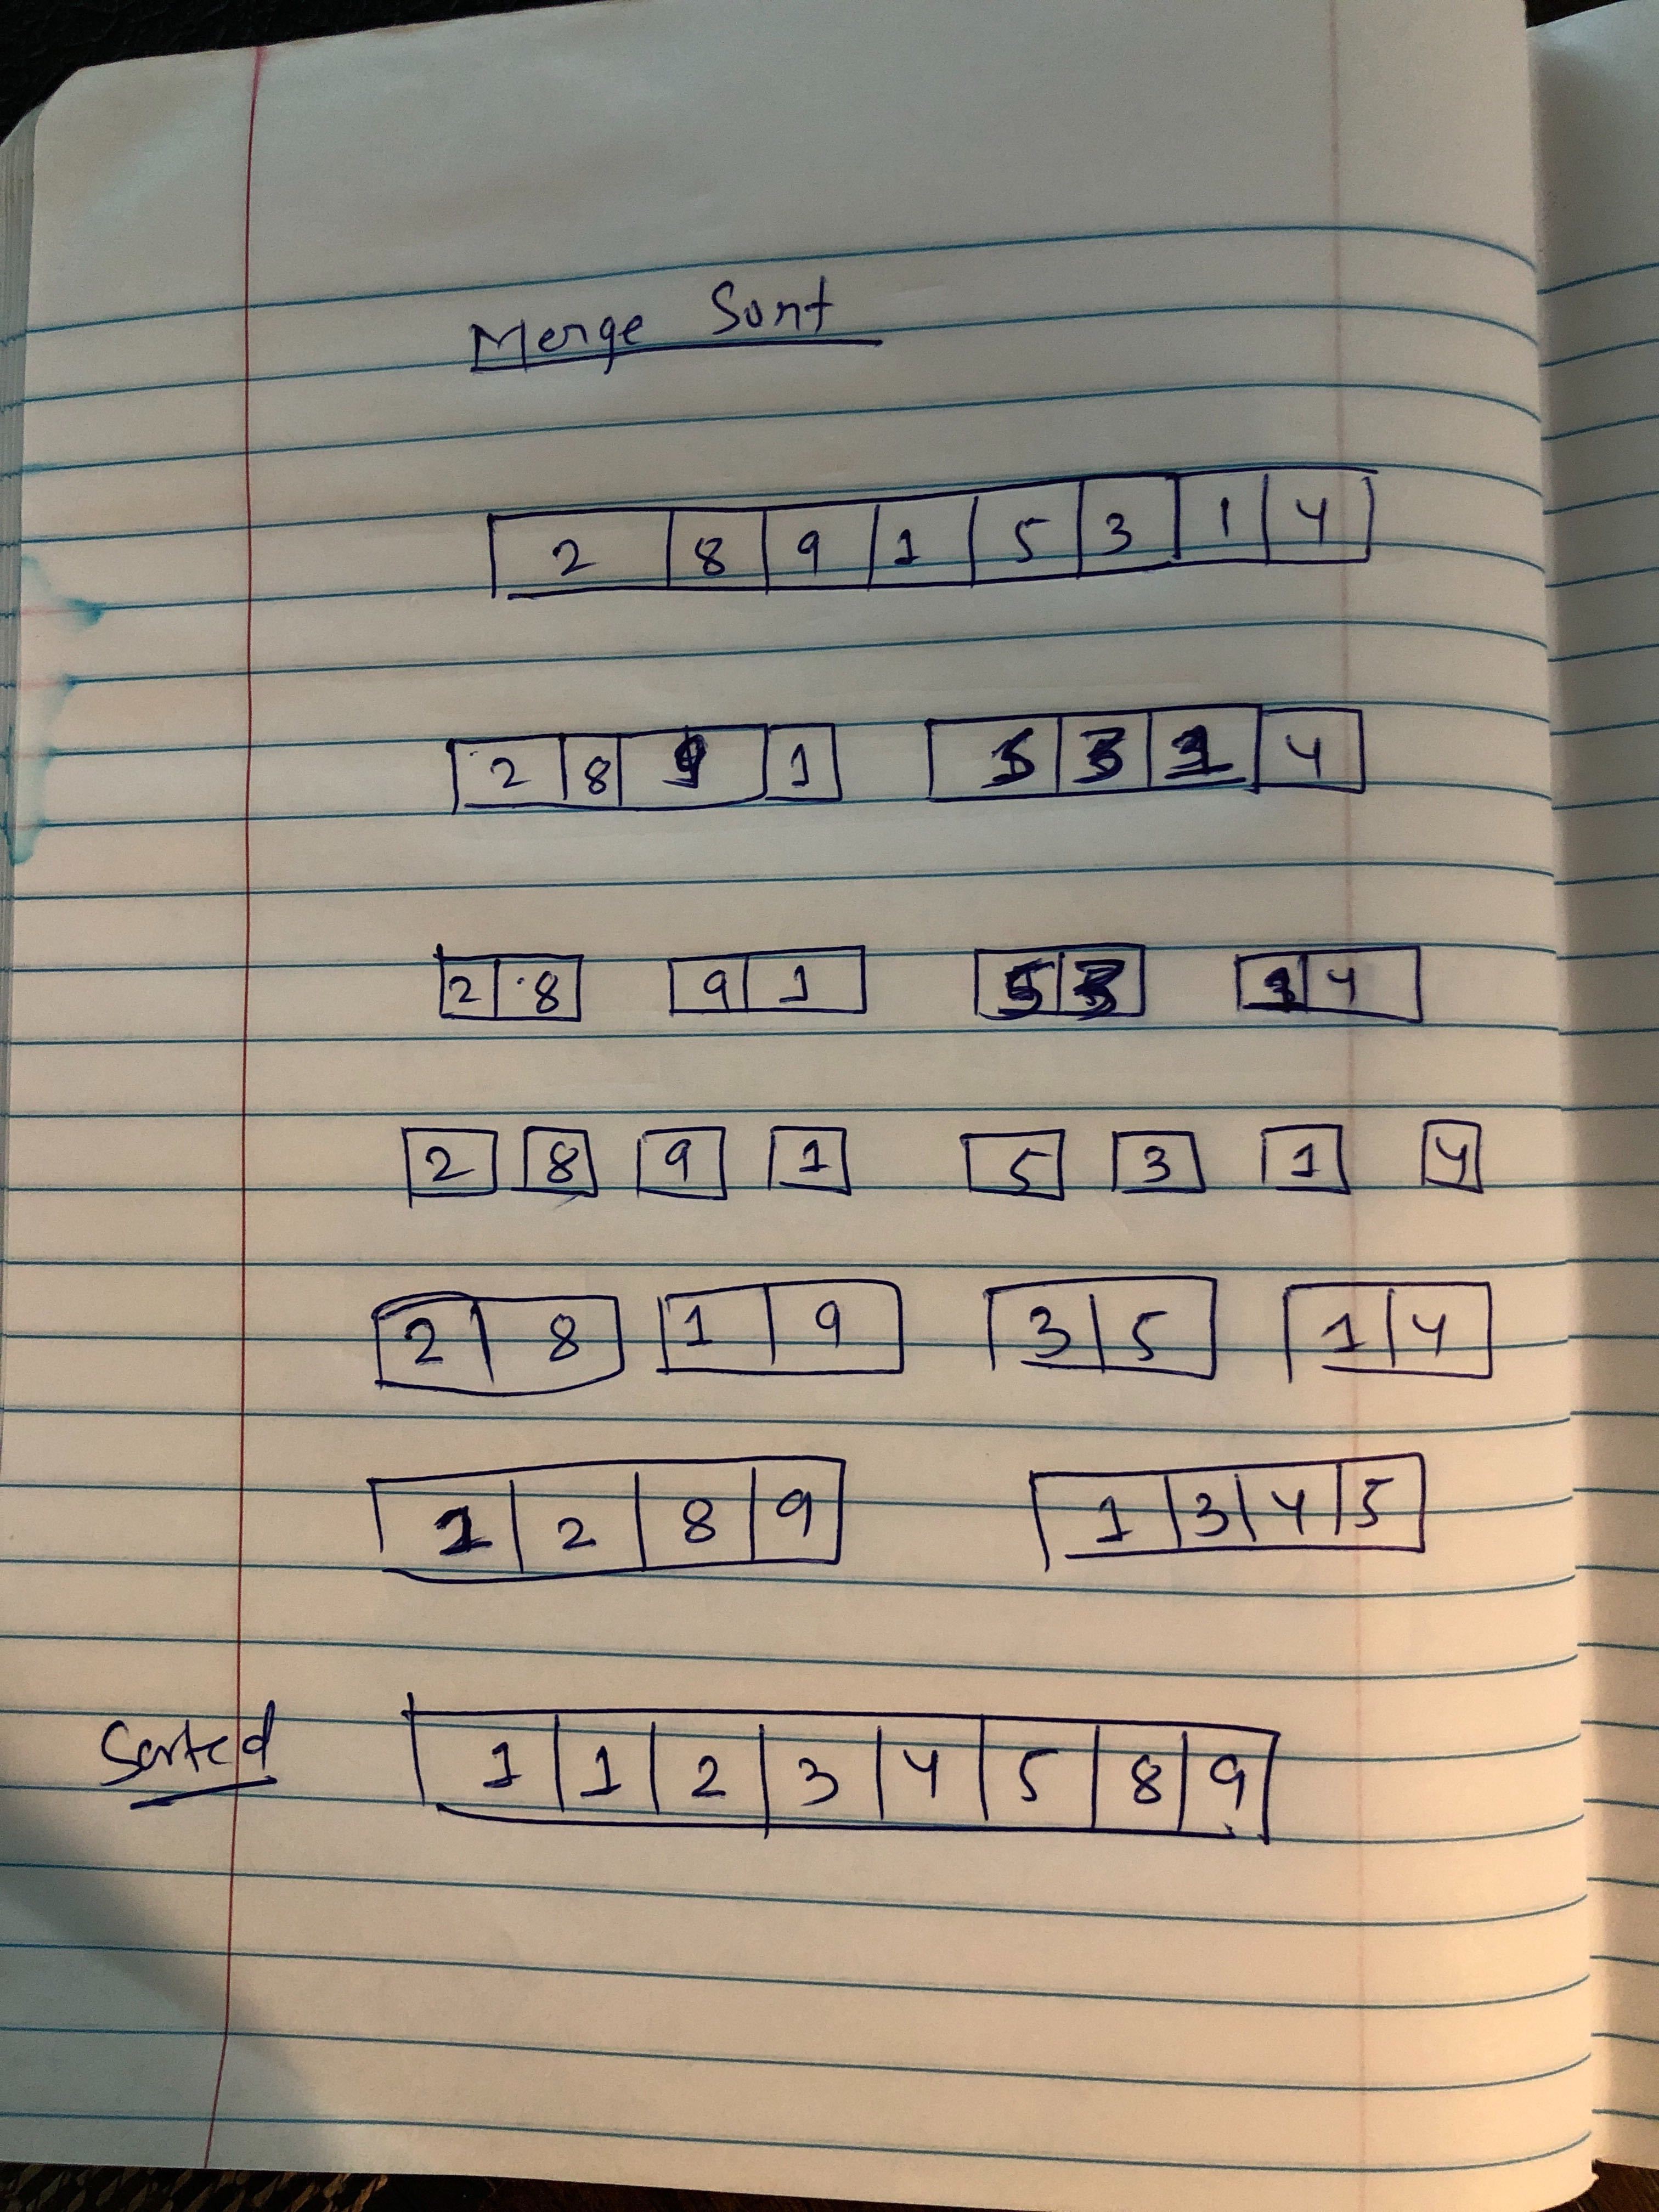 Merge Sort
2 8 9 1 5 3 1 4
2 8 9 1 5 3 1 4
2 8 9 1 5 3 1 4
2 8 9 1 5 3 1 4
2 8 1 9 3 5 1 4
1 2 8 9 1 3 4 5
Sorted 1 1 2 3 4 5 8 9